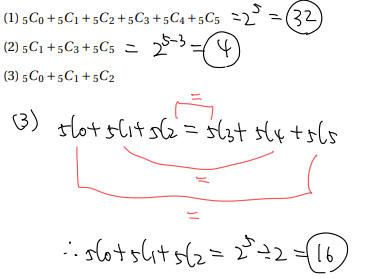 (1) ₅C₀ + ₅C₁ + ₅C₂ + ₅C₃ + ₅C₄ + ₅C₅ = 2⁵ = 32
(2) ₅C₁ + ₅C₃ + ₅C₅ = 2⁵⁻³ = 4
(3) ₅C₀ + ₅C₁ + ₅C₂
=
(3) ₅C₀ + ₅C₁ + ₅C₂ = ₅C₃ + ₅C₄ + ₅C₅
=
=
∴ ₅C₀ + ₅C₁ + ₅C₂ = 2⁵ ÷ 2 = 16